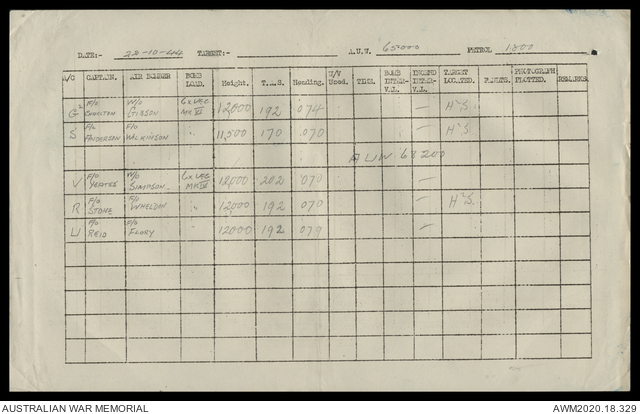 DATE:- 22-10-44 TARGET:- A.U.W. 65000 PETROL 1500
A/C CAPTAIN. AIR BOMBER BOMB LOAD. Height. T.A.S. Heading. W/V Used. TIME. BOMB INTER- VAL. INCEND INTER- VAL. TARGET LOCATED. RESULTS. PHOTOGRAPH PLOTTED. REMARKS.
G2 F/O W/O GIBSON 6x VEG MK VI 12000 192 074 — H2S.
S F/L ANDERSON F/O WILKINSON " 11,500 170 070 — H2S.
AUW 68200
V F/O YEATES W/O SIMPSON 6x VEG MK VI 12,000 202 070 —
R F/O STONE F/O WHELDON " 12,000 192 070 — H2S.
U F/O REID F/O FLORY " 12000 192 079 —
AUSTRALIAN WAR MEMORIAL AWM2020.18.329